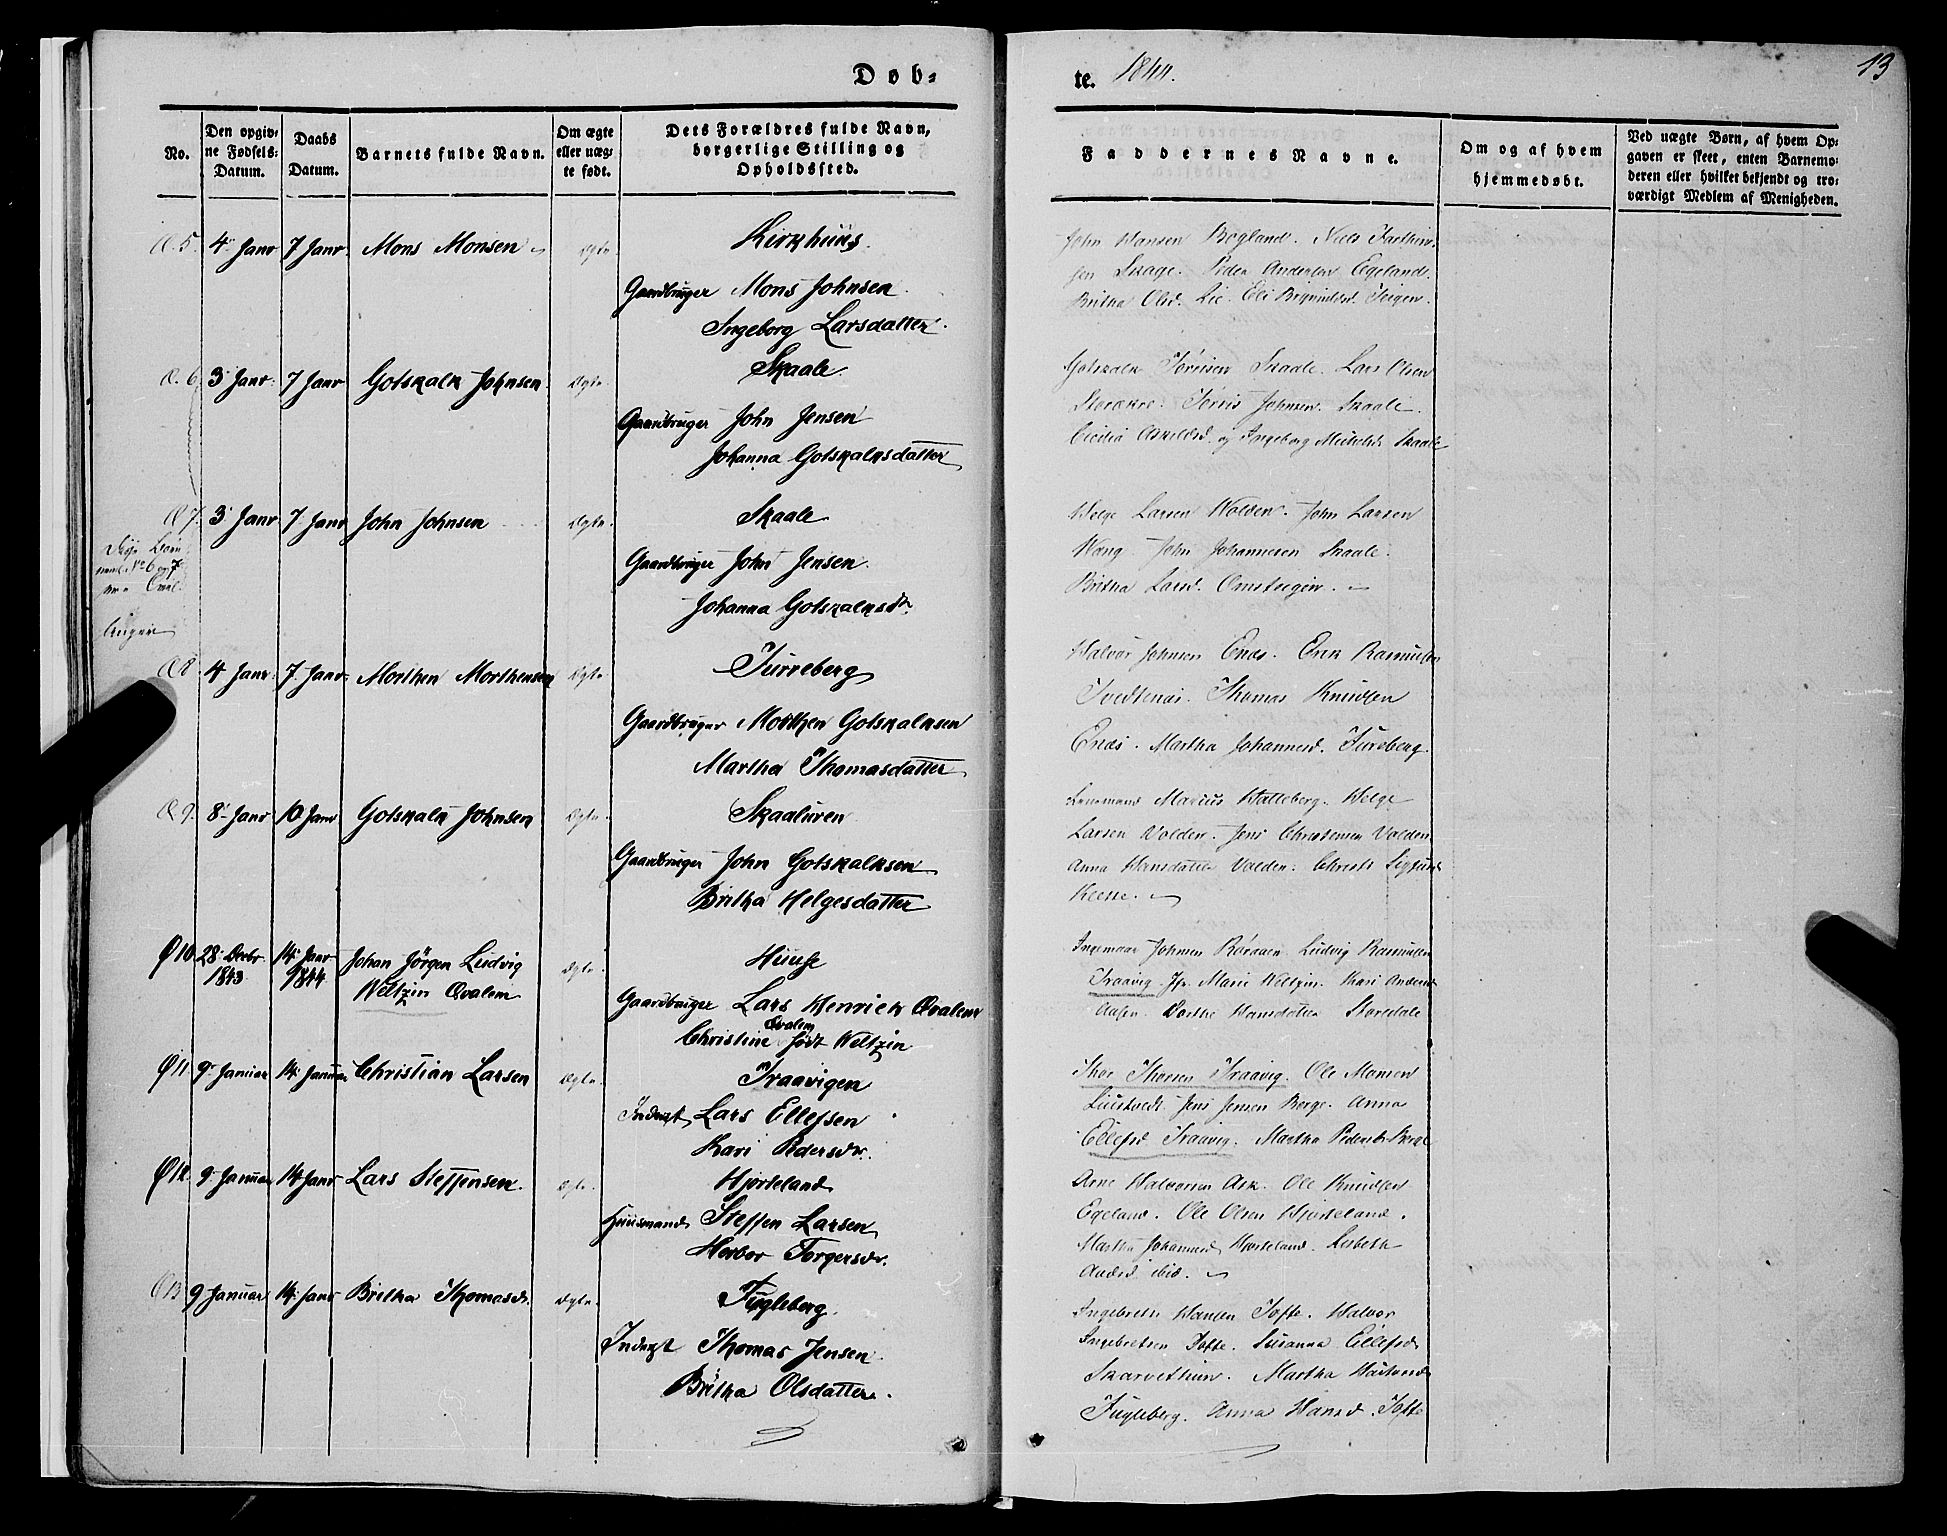 Døb-
te. 1844.
13
No.
Den opgiv-
ne Fødsels-
Datum.
Daabs
Datum.
Barnets fulde Navn.
Om ægte
eller uæg-
te født.
Dets Forældres fulde Navn,
borgerlige Stilling og
Opholdssted.
Faddernes Navne.
Om og af hvem
hjemmedøbt.
Ved uægte Børn, af hvem Op-
gaven er skeet, enten Barnemo-
deren eller hvilket bekjendt og tro-
værdigt Medlem af Menigheden.
5. 4 Janr 7 Janr. Mons Monsen Ægte Kirkhuus.
Gaardbruger Mons Johnsen
Ingeborg Larsdatter.
John Hansen Bogland. Niels
Skage. Peder Andersen Egeland.
Britha Olsd. Lie. Eli Teigen.
6. 3 Janr. 7 Janr Gotskalk Johnsen. Ægte Skaale
Gaardbruger John Jensen
Johanna Gotskalksdatter
Gotskalk Tørrisen Skaale. Lars Olsen
Tørris Johnsen. Skaale.
Cicilia og Ingeborg Skaale
7. 3 Janr 7 Janr John Johnsen Ægte. Skaale
Gaardbruger John Jensen.
Johanna Gotskalksdr.
Helge Larsen Wolden. John Larsen
Wang. John Johannesen Skaale.
Britha Larsd. Omsteigen.
No 6 og 7
8. 4 Janr. 7 Janr. Morthen Morthensen Ægte Furreberg
Gaardbruger Morthen Gotskalksen
Martha Thomasdatter
Halvor Johnsen Enæs. Erik Rasmussen
Tvedtenæs. Thomas Knudsen
Enæs. Martha Johannesd. Fureberg.
9. 8 Janr 10 Janr Gotskalk Johnsen Ægte. Skaaluren
Gaardbruger John Gotskalksen
Britha Helgesdatter
Lensmand Marius Hatteberg. Helge
Larsen Volden. Jens Christensen Volden
Anna Hansdatter Volden. Christi
10 28 Decbr. 1843 14 Janr 1844 Johan Jörgen Ludvig
Weltzin Qvalem Ægte. Huuse
Gaardbruger Lars Henrick Qvalem
Christine Qvalem født Weltzin
Ingemaar Johnsen Ludvig Rasmussen
Traavig. Jfr. Marie Weltzin. Kari Andersd
Aasen. Dorthe Hansdatter
11 9 Januar 14 Januar Christian Larsen Ægte. Traavigen
Inderst Lars Ellefsen
Kari Pedersdr.
Thor Thorsen Traavig. Ole Monsen
Jens Jensen Berge. Anna
Ellefsd Traavig. Martha Pedersdr Berge
12. 9 Januar 14 Janr Lars Steffensen. Ægte. Hjorteland
Huusmand Steffen Larsen
Herbor Torgersdr.
Arne Halvorsen Ask. Ole Knudsen
Egeland. Ole Olsen Hjorteland.
Martha Johannesd Hjorteland. Lisbeth
Andsd ibid.
13 9 Januar 14 Janr Britha Thomasdr. Ægte. Fugleberg.
Inderst Thomas Jensen.
Britha Olsdatter.
Ingebreth Hansen Tofte. Halvor
Ingebretsen Tofte. Susanna Ellefsd
Martha
Fugleberg. Anna Hansd. Tofte